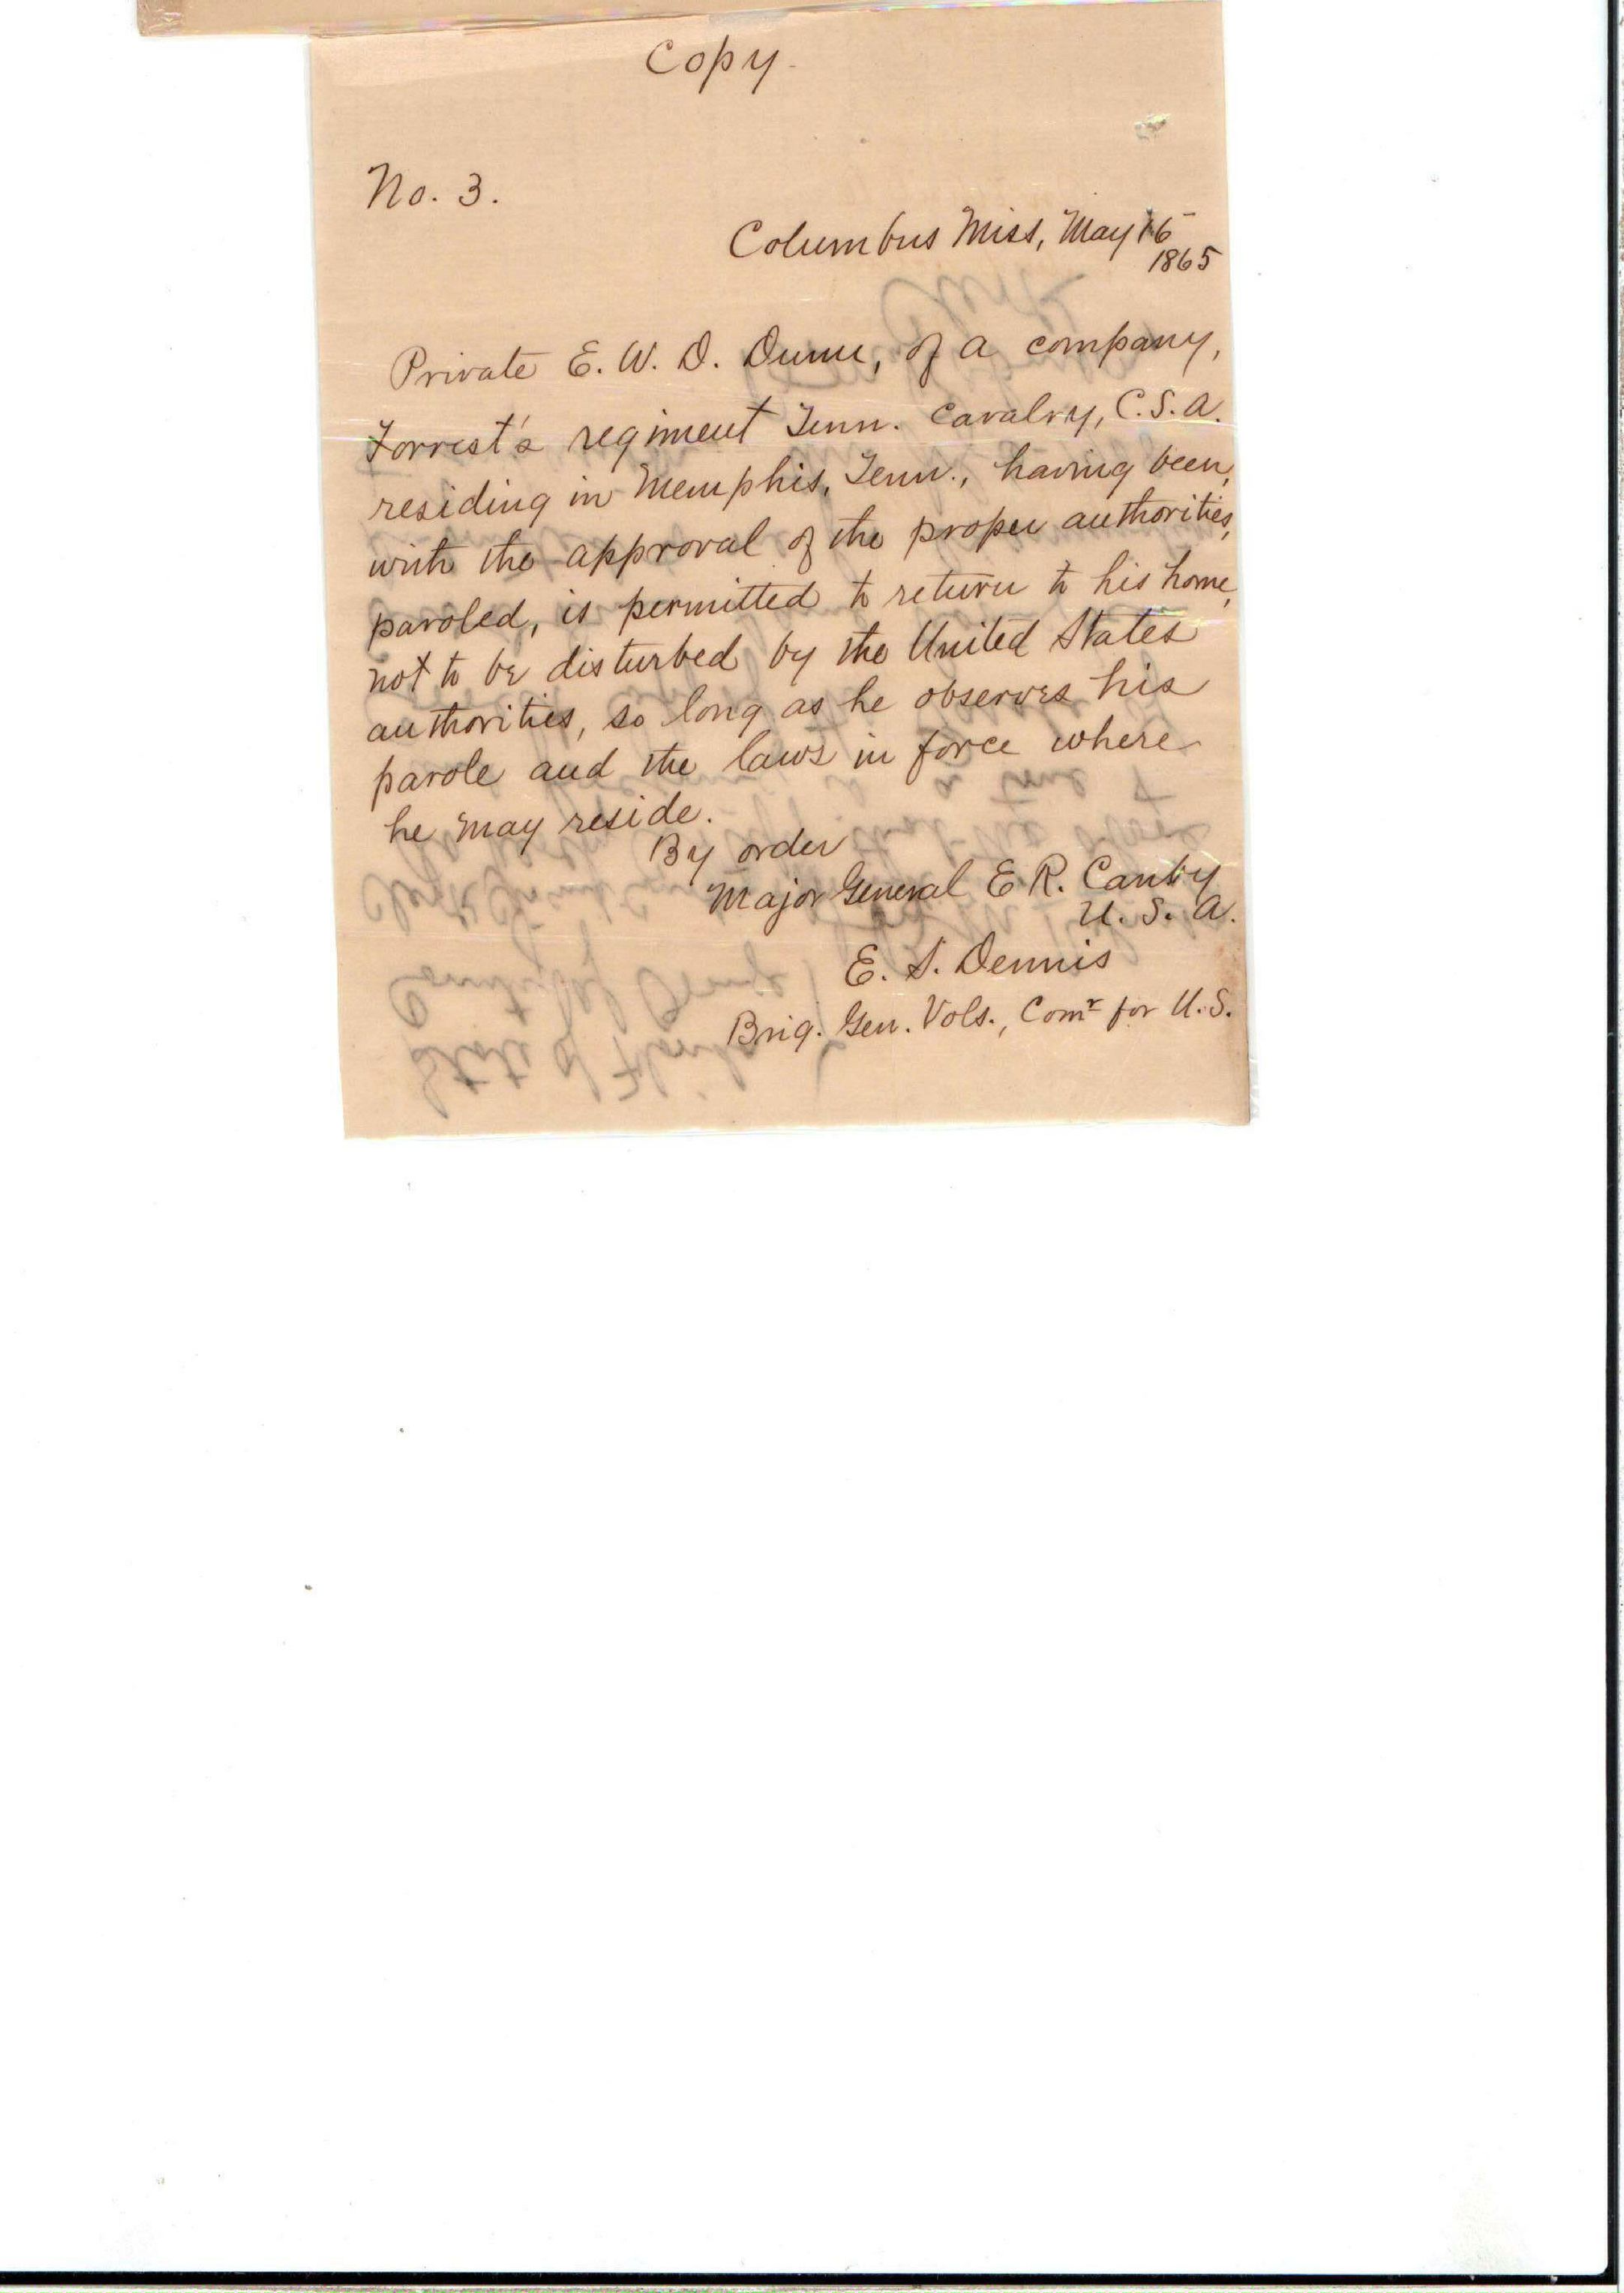 Copy.
No. 3.
Columbus Miss, May 16
1865
Private E. W. D. Dunn, of a company,
Forrest's regiment Tenn. Cavalry, C.S.A.
residing in Memphis, Tenn., having been,
with the approval of the proper authorities,
paroled, is permitted to return to his home,
not to be disturbed by the United States
authorities, so long as he observes his
parole and the laws in force where
he may reside.
By order
Major General E R. Canby
U. S. A.
E. S. Dennis
Brig. Gen. Vols., Comr for U.S.